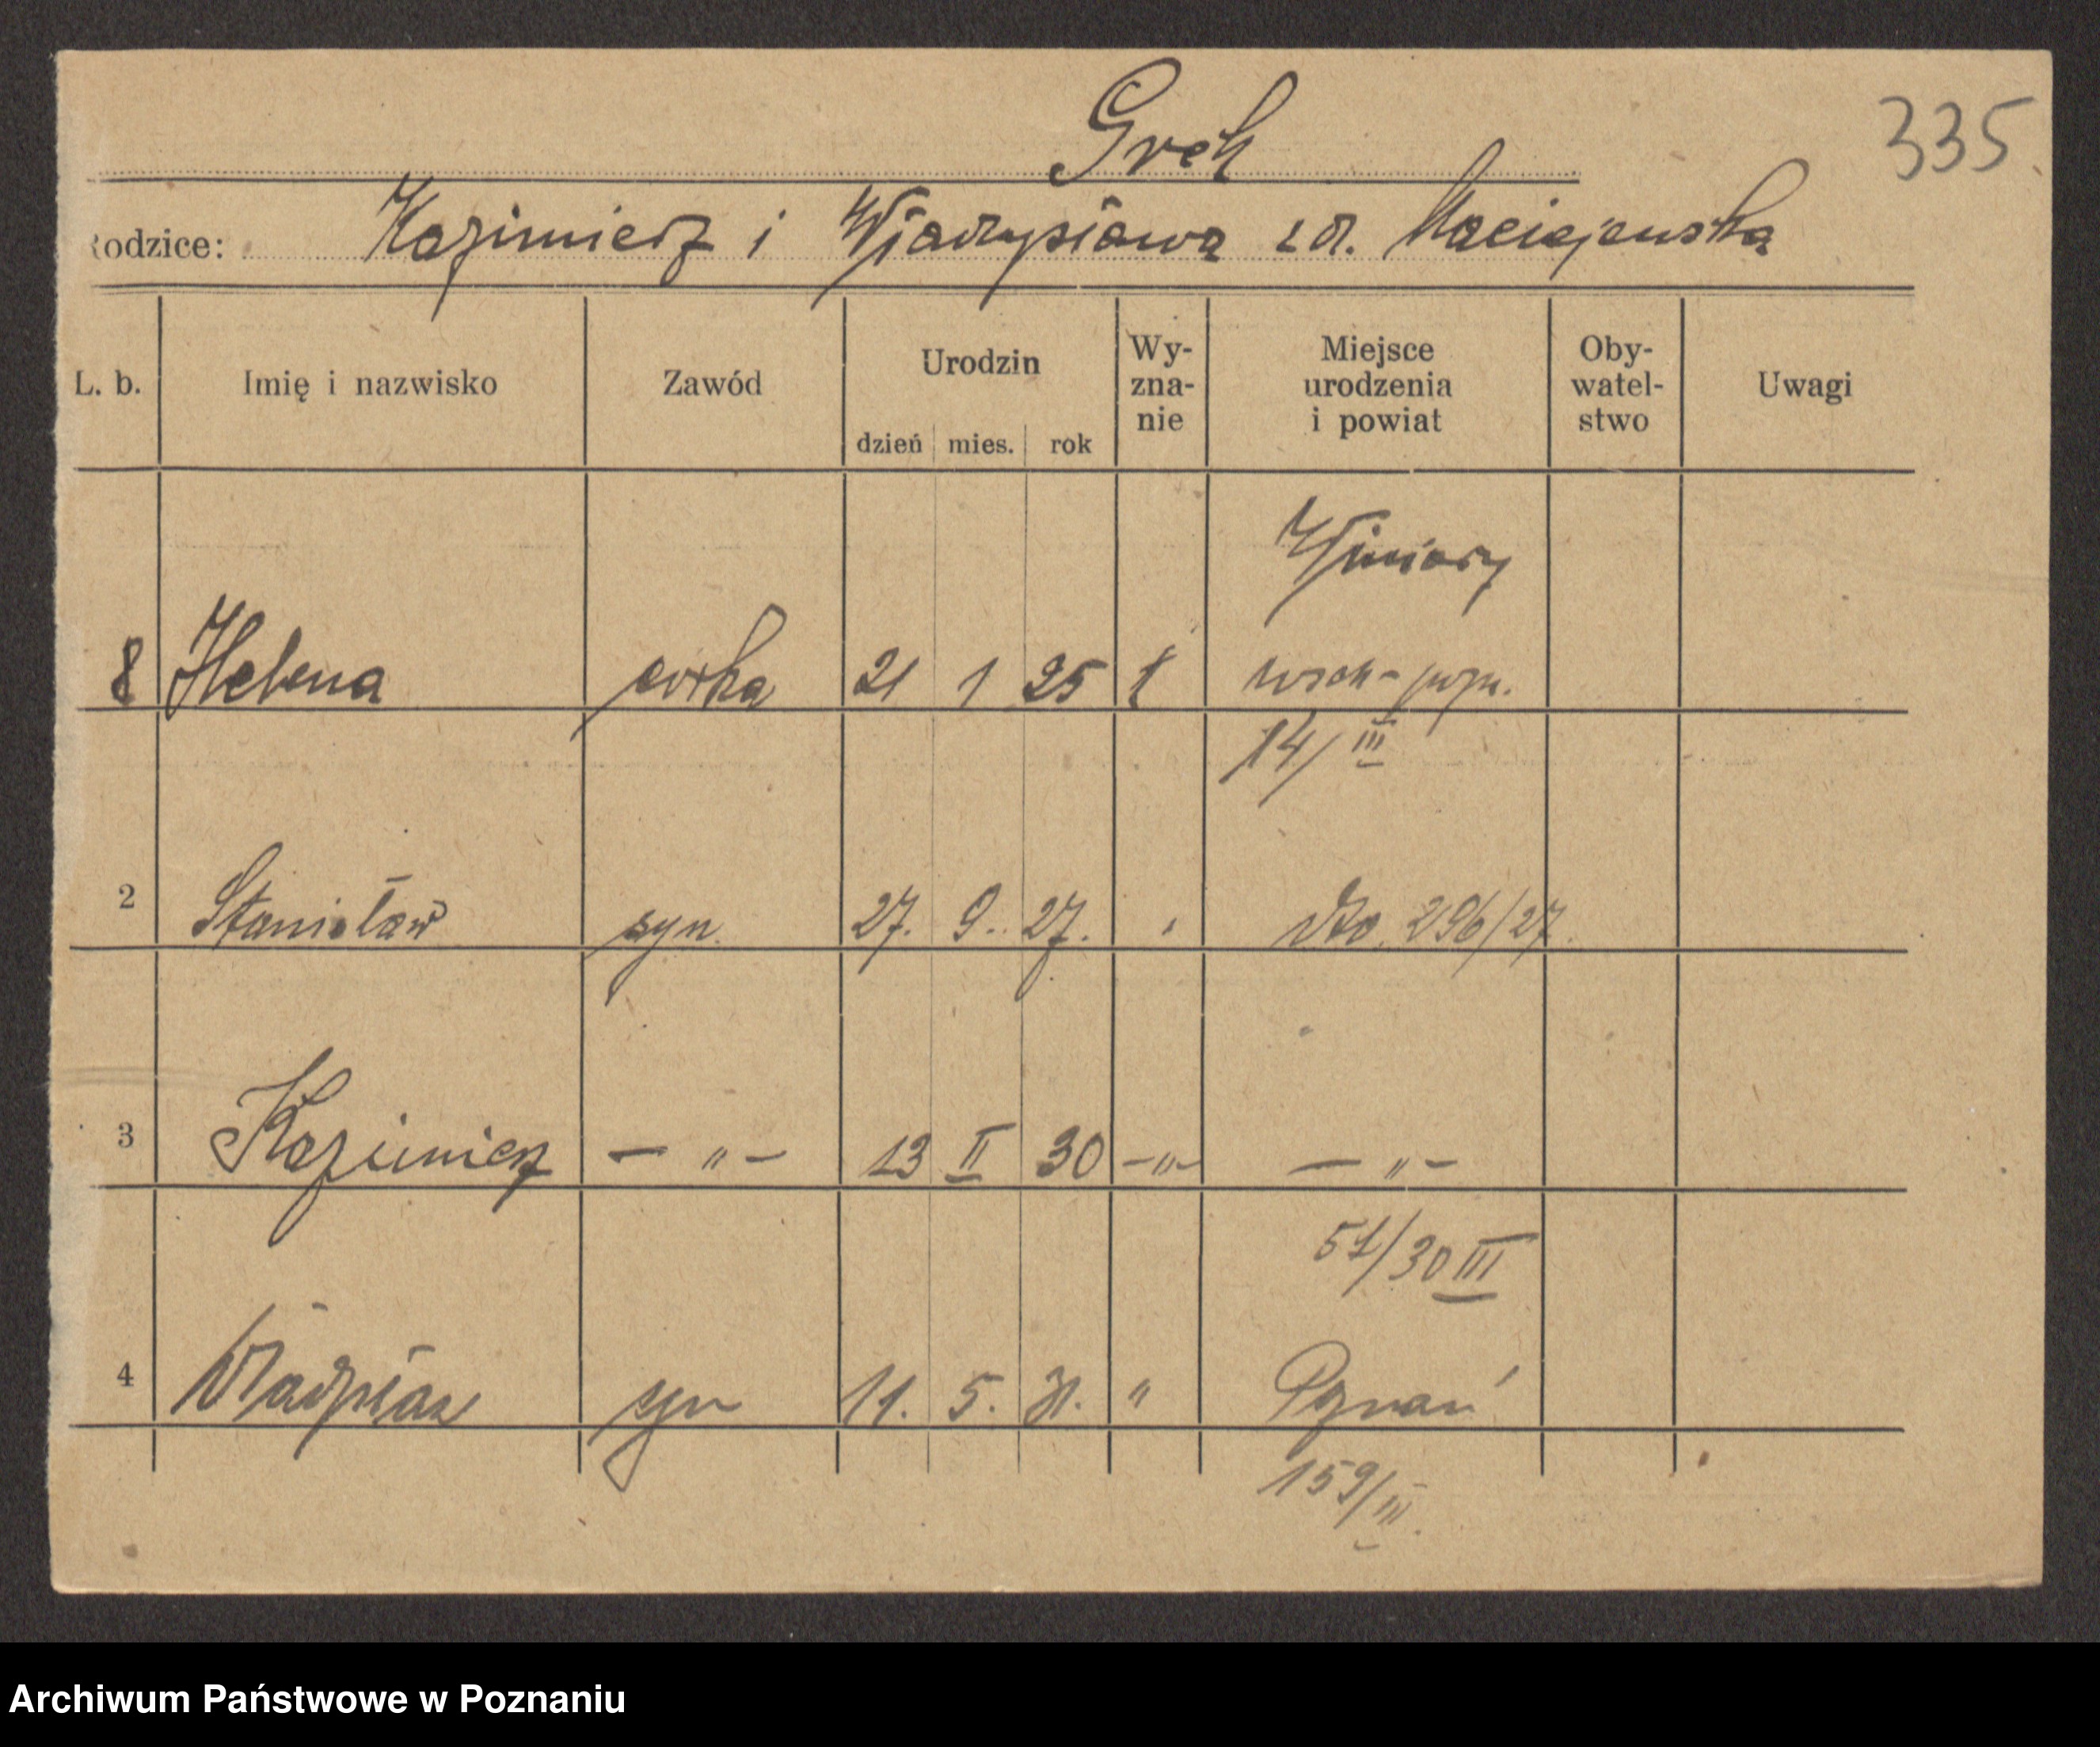 Grek
335
Rodzice: Kazimierz i Władysława z d. Maciejewska
L. b. Imię i nazwisko Zawód Urodzin dzień mies. rok Wy-zna-nie Miejsce urodzenia i powiat Oby-watel-stwo Uwagi
Winiary
8 Helena córka 21 1 25 wsch-pozn.
14/III
2 Stanisław syn 27. 9. 27. dto. 296/27.
3 Kazimierz — " — 13 II 30 -"- — " —
51/30 III
4 Władysław syn 11. 5. " Poznań
159/III.
Archiwum Państwowe w Poznaniu